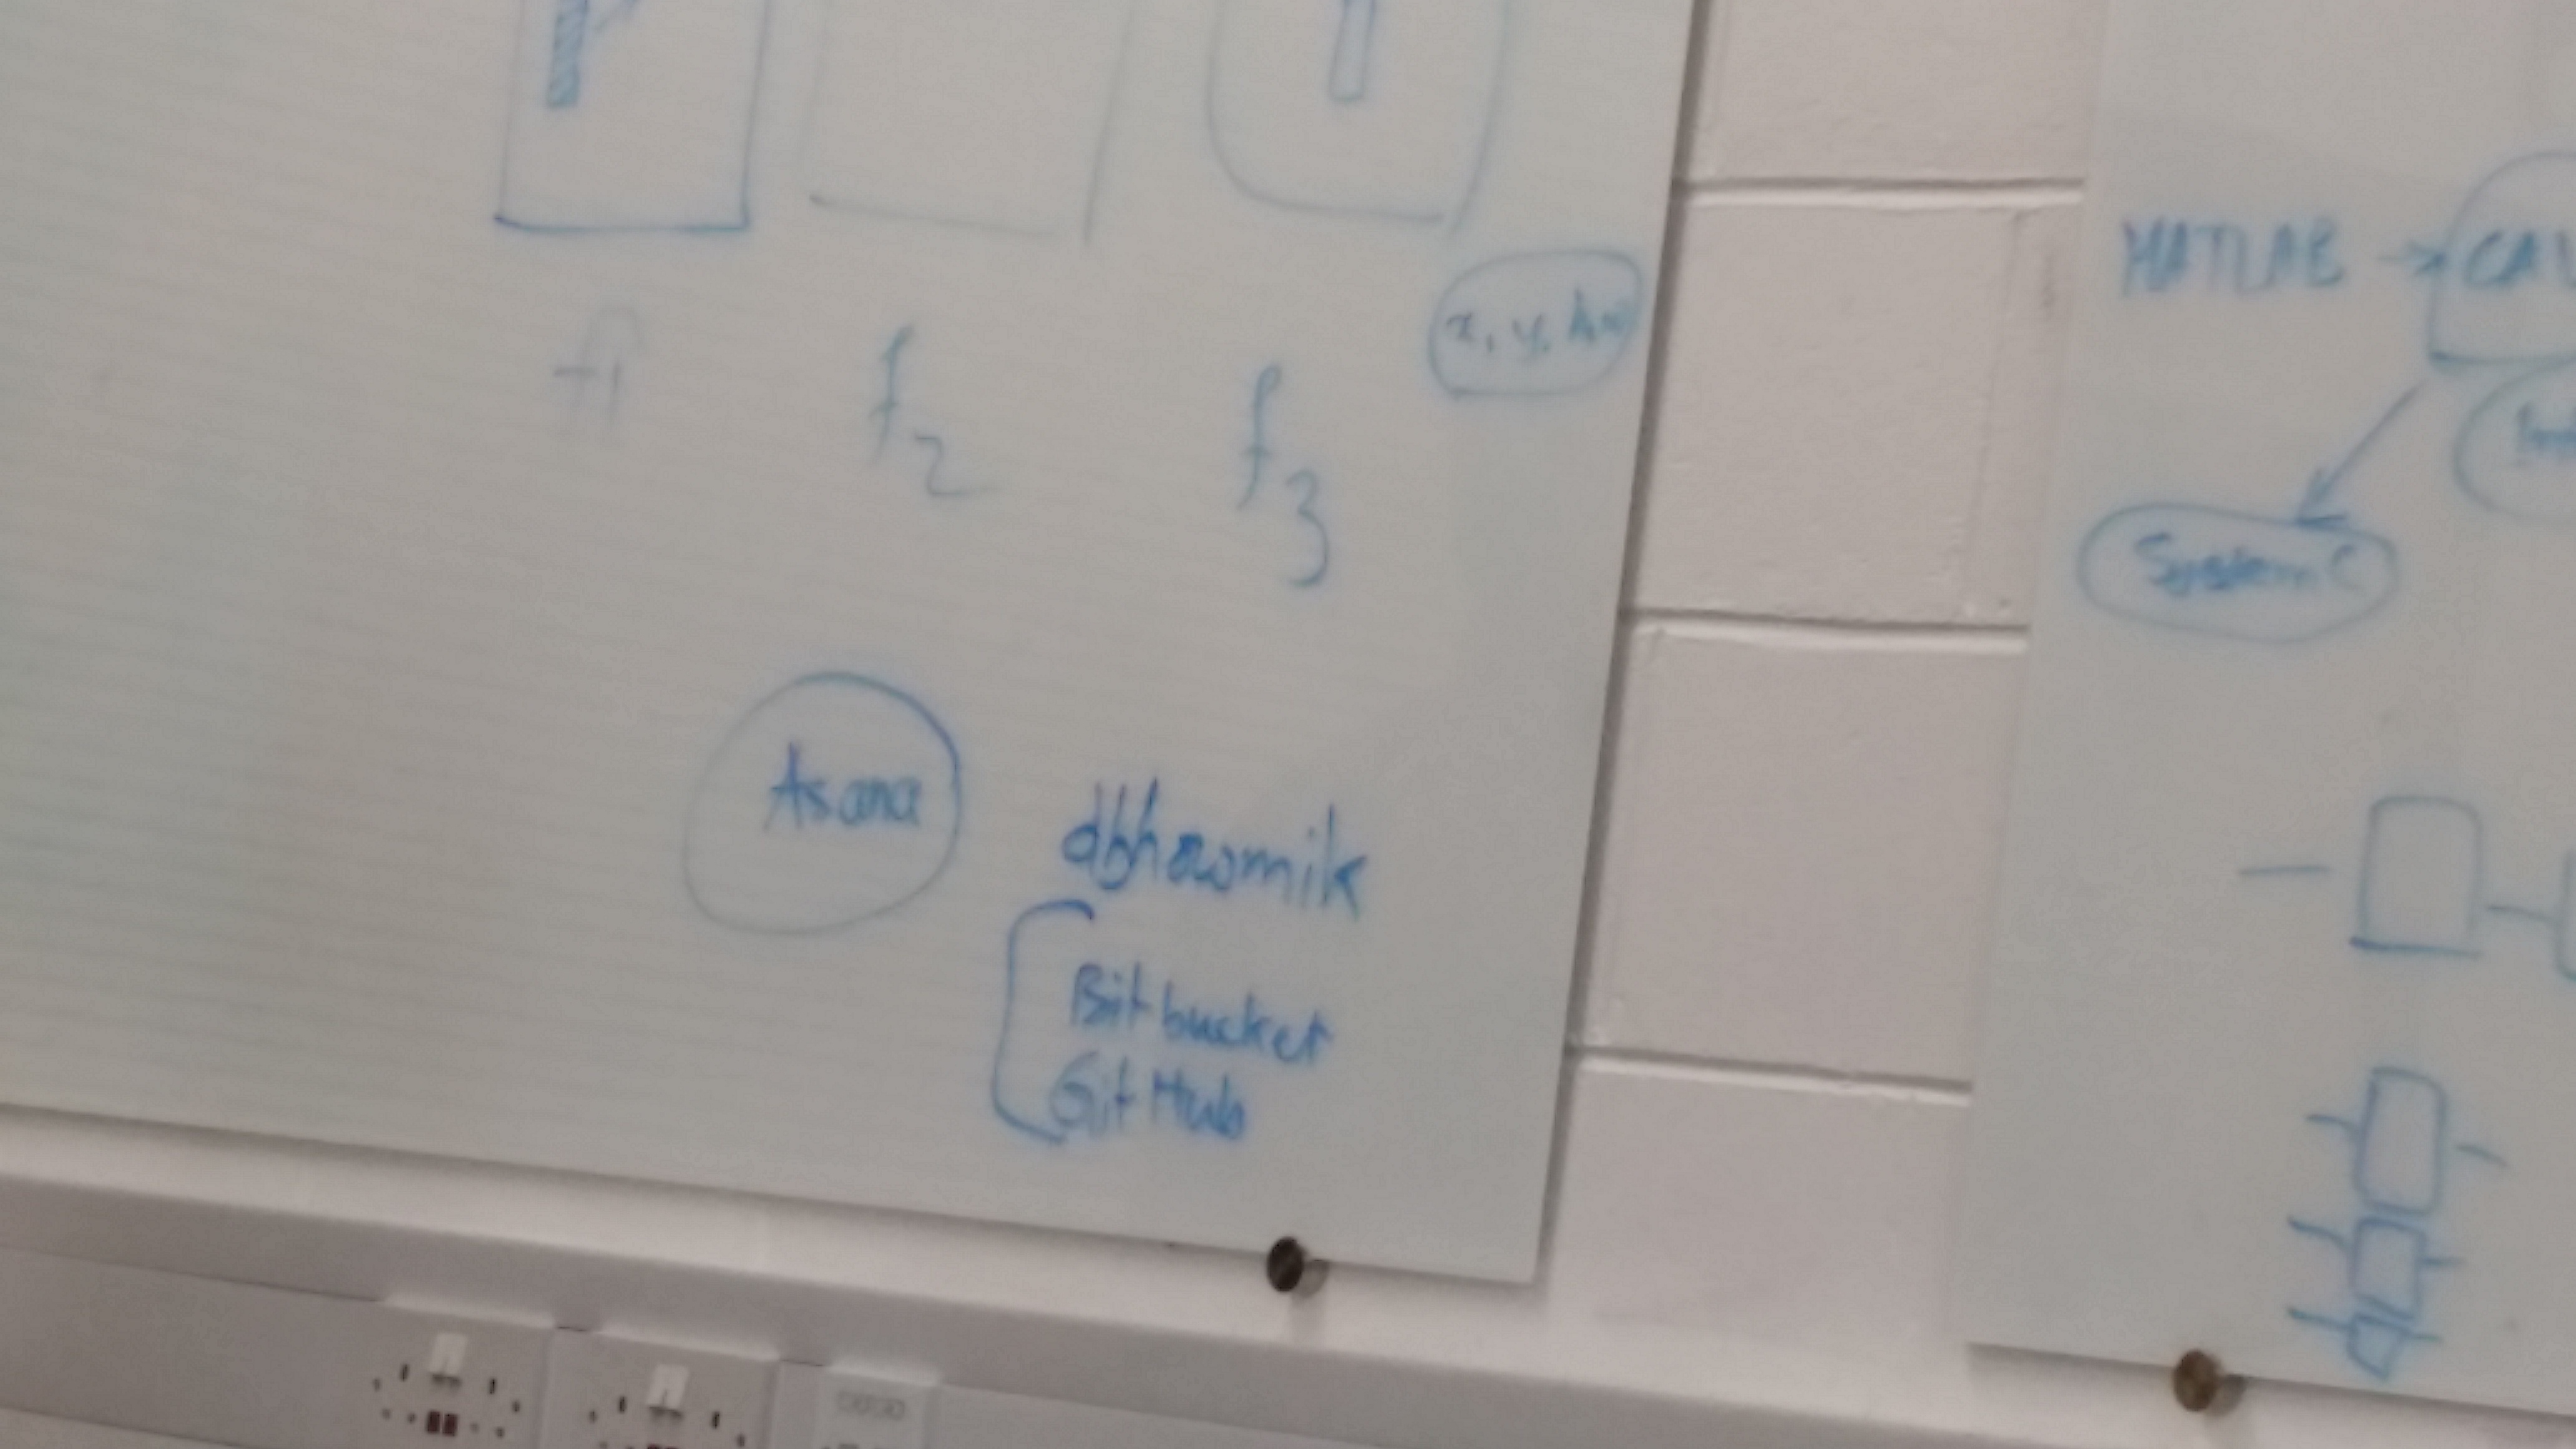 f1
f2
f3
x, y, h, w
Asana
dbhowmik
Bitbucket
GitHub
MATLAB →
System C